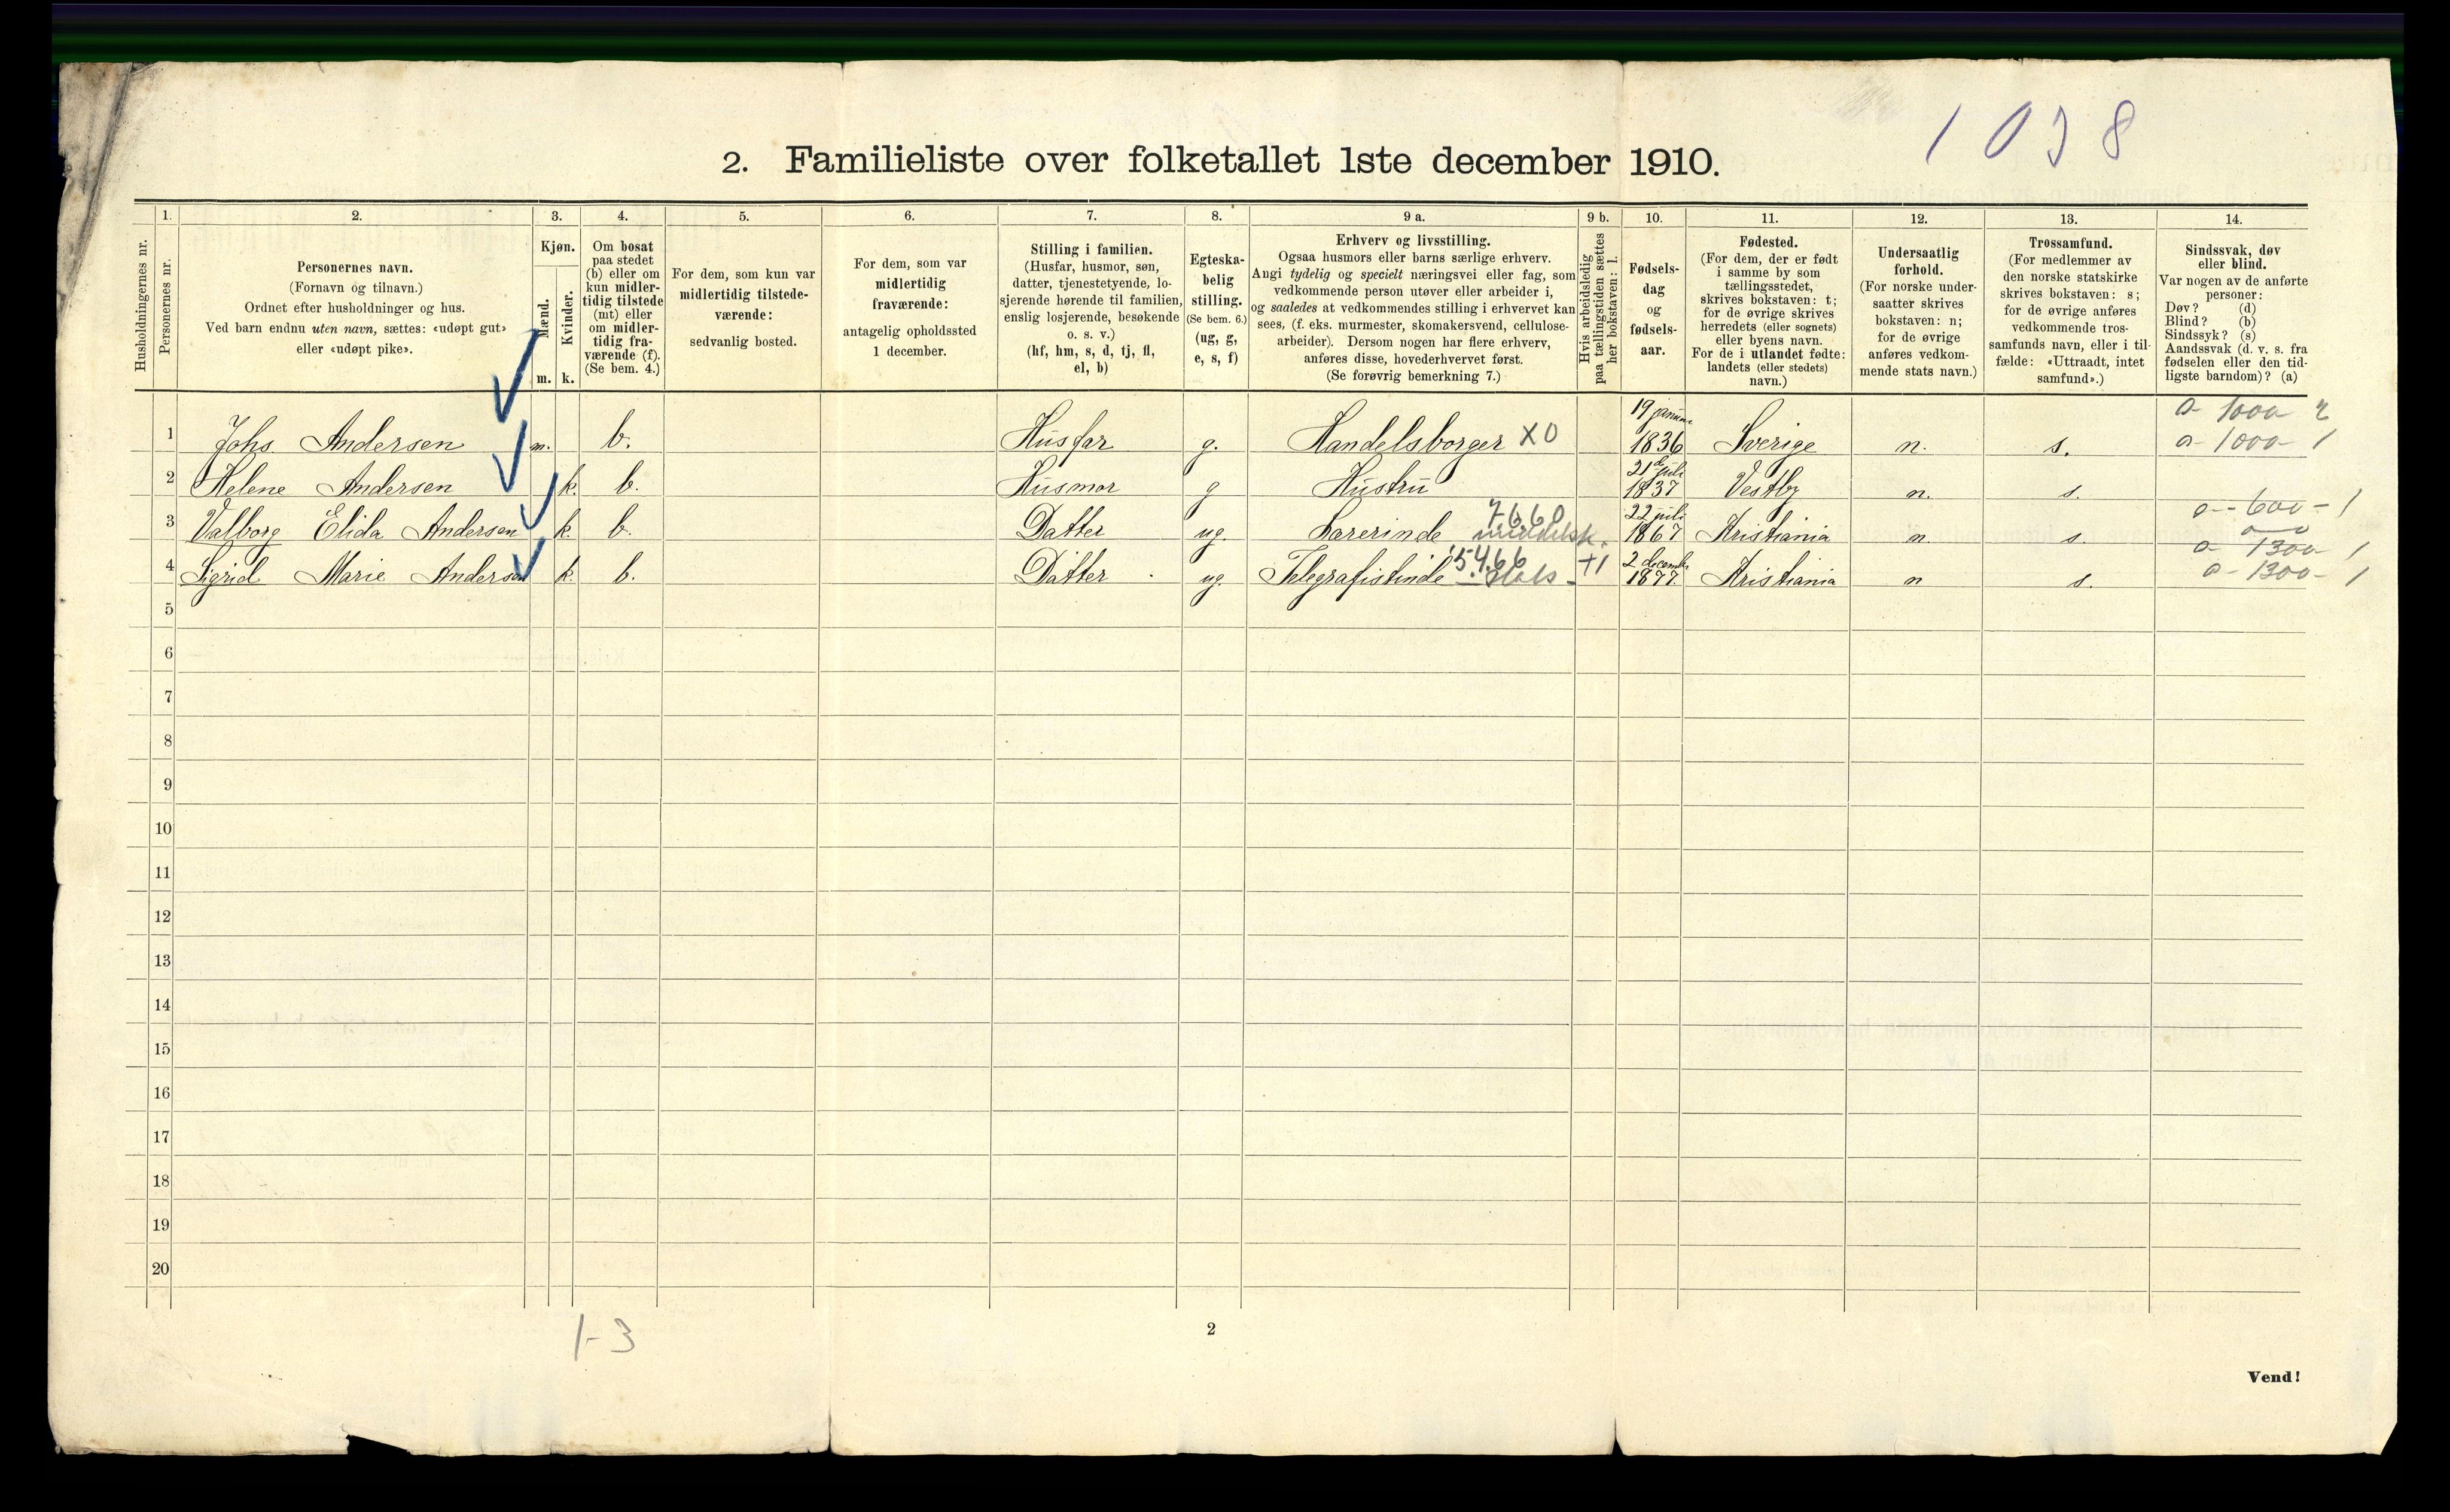 1038
2. Familieliste over folketallet 1ste december 1910.
Husholdningernes nr.
1.
Personernes nr.
2.
Personernes navn.
(Fornavn og tilnavn.)
Ordnet efter husholdninger og hus.
Ved barn endnu uten navn, sættes: «udøpt gut»
eller «udøpt pike».
3.
Kjøn.
Mænd.
Kvinder.
m. k.
4.
Om bosat
paa stedet
(b) eller om
kun midler-
tidig tilstede
(mt) eller
om midler-
tidig fra-
værende (f).
(Se bem. 4.)
5.
For dem, som kun var
midlertidig tilstede-
værende:
sedvanlig bosted.
6.
For dem, som var
midlertidig
fraværende:
antagelig opholdssted
1 december.
7.
Stilling i familien.
(Husfar, husmor, søn,
datter, tjenestetyende, lo-
sjerende hørende til familien,
enslig losjerende, besøkende
o. s. v.)
(hf, hm, s, d, tj, fl,
el, b)
8.
Egteska-
belig
stilling.
(Se bem. 6.)
(ug, g,
e, s, f)
9 a.
Erhverv og livsstilling.
Ogsaa husmors eller barns særlige erhverv.
Angi tydelig og specielt næringsvei eller fag, som
vedkommende person utøver eller arbeider i,
og saaledes at vedkommendes stilling i erhvervet kan
sees, (f. eks. murmester, skomakersvend, cellulose-
arbeider). Dersom nogen har flere erhverv,
anføres disse, hovederhvervet først.
(Se forøvrig bemerkning 7.)
9 b.
Hvis arbeidsledig
paa tællingstiden sættes
her bokstaven: l.
10.
Fødsels-
dag
og
fødsels-
aar.
11.
Fødested.
(For dem, der er født
i samme by som
tællingsstedet,
skrives bokstaven: t;
for de øvrige skrives
herredets (eller sognets)
eller byens navn.
For de i utlandet fødte:
landets (eller stedets)
navn.)
12.
Undersaatlig
forhold.
(For norske under-
saatter skrives
bokstaven: n;
for de øvrige
anføres vedkom-
mende stats navn.)
13.
Trossamfund.
(For medlemmer av
den norske statskirke
skrives bokstaven: s;
for de øvrige anføres
vedkommende tros-
samfunds navn, eller i til-
fælde: «Uttraadt, intet
samfund».)
14.
Sindssvak, døv
eller blind.
Var nogen av de anførte
personer:
Døv? (d)
Blind? (b)
Sindssyk? (s)
Aandssvak (d. v. s. fra
fødselen eller den tid-
ligste barndom)? (a)
19 januar 0- 1000- 2
1 Johs. Andersen m. b. Husfar g. Handelsborger X0 1836 Sverige n. s. 0- 1000- 1
21de juli
2 Helene Andersen k. b. Husmor g Hustru 1837 Vestby n. s.
7660 22 juli 0-- 600 - 1
3 Valborg Elida Andersen k. b. Datter ug Lærerinde middelsk. 1867 Kristiania n. s.
5466 +1 2 decemb. 0- 1300- 1
4 Sigrid Marie Andersen k. b. Datter ug. Telegrafistinde Stats 1877. Kristiania n s. 0- 1300- 1
5
6
7
8
9
10
11
12
13
14
15
16
17
18
19
20
1-3
2
Vend!